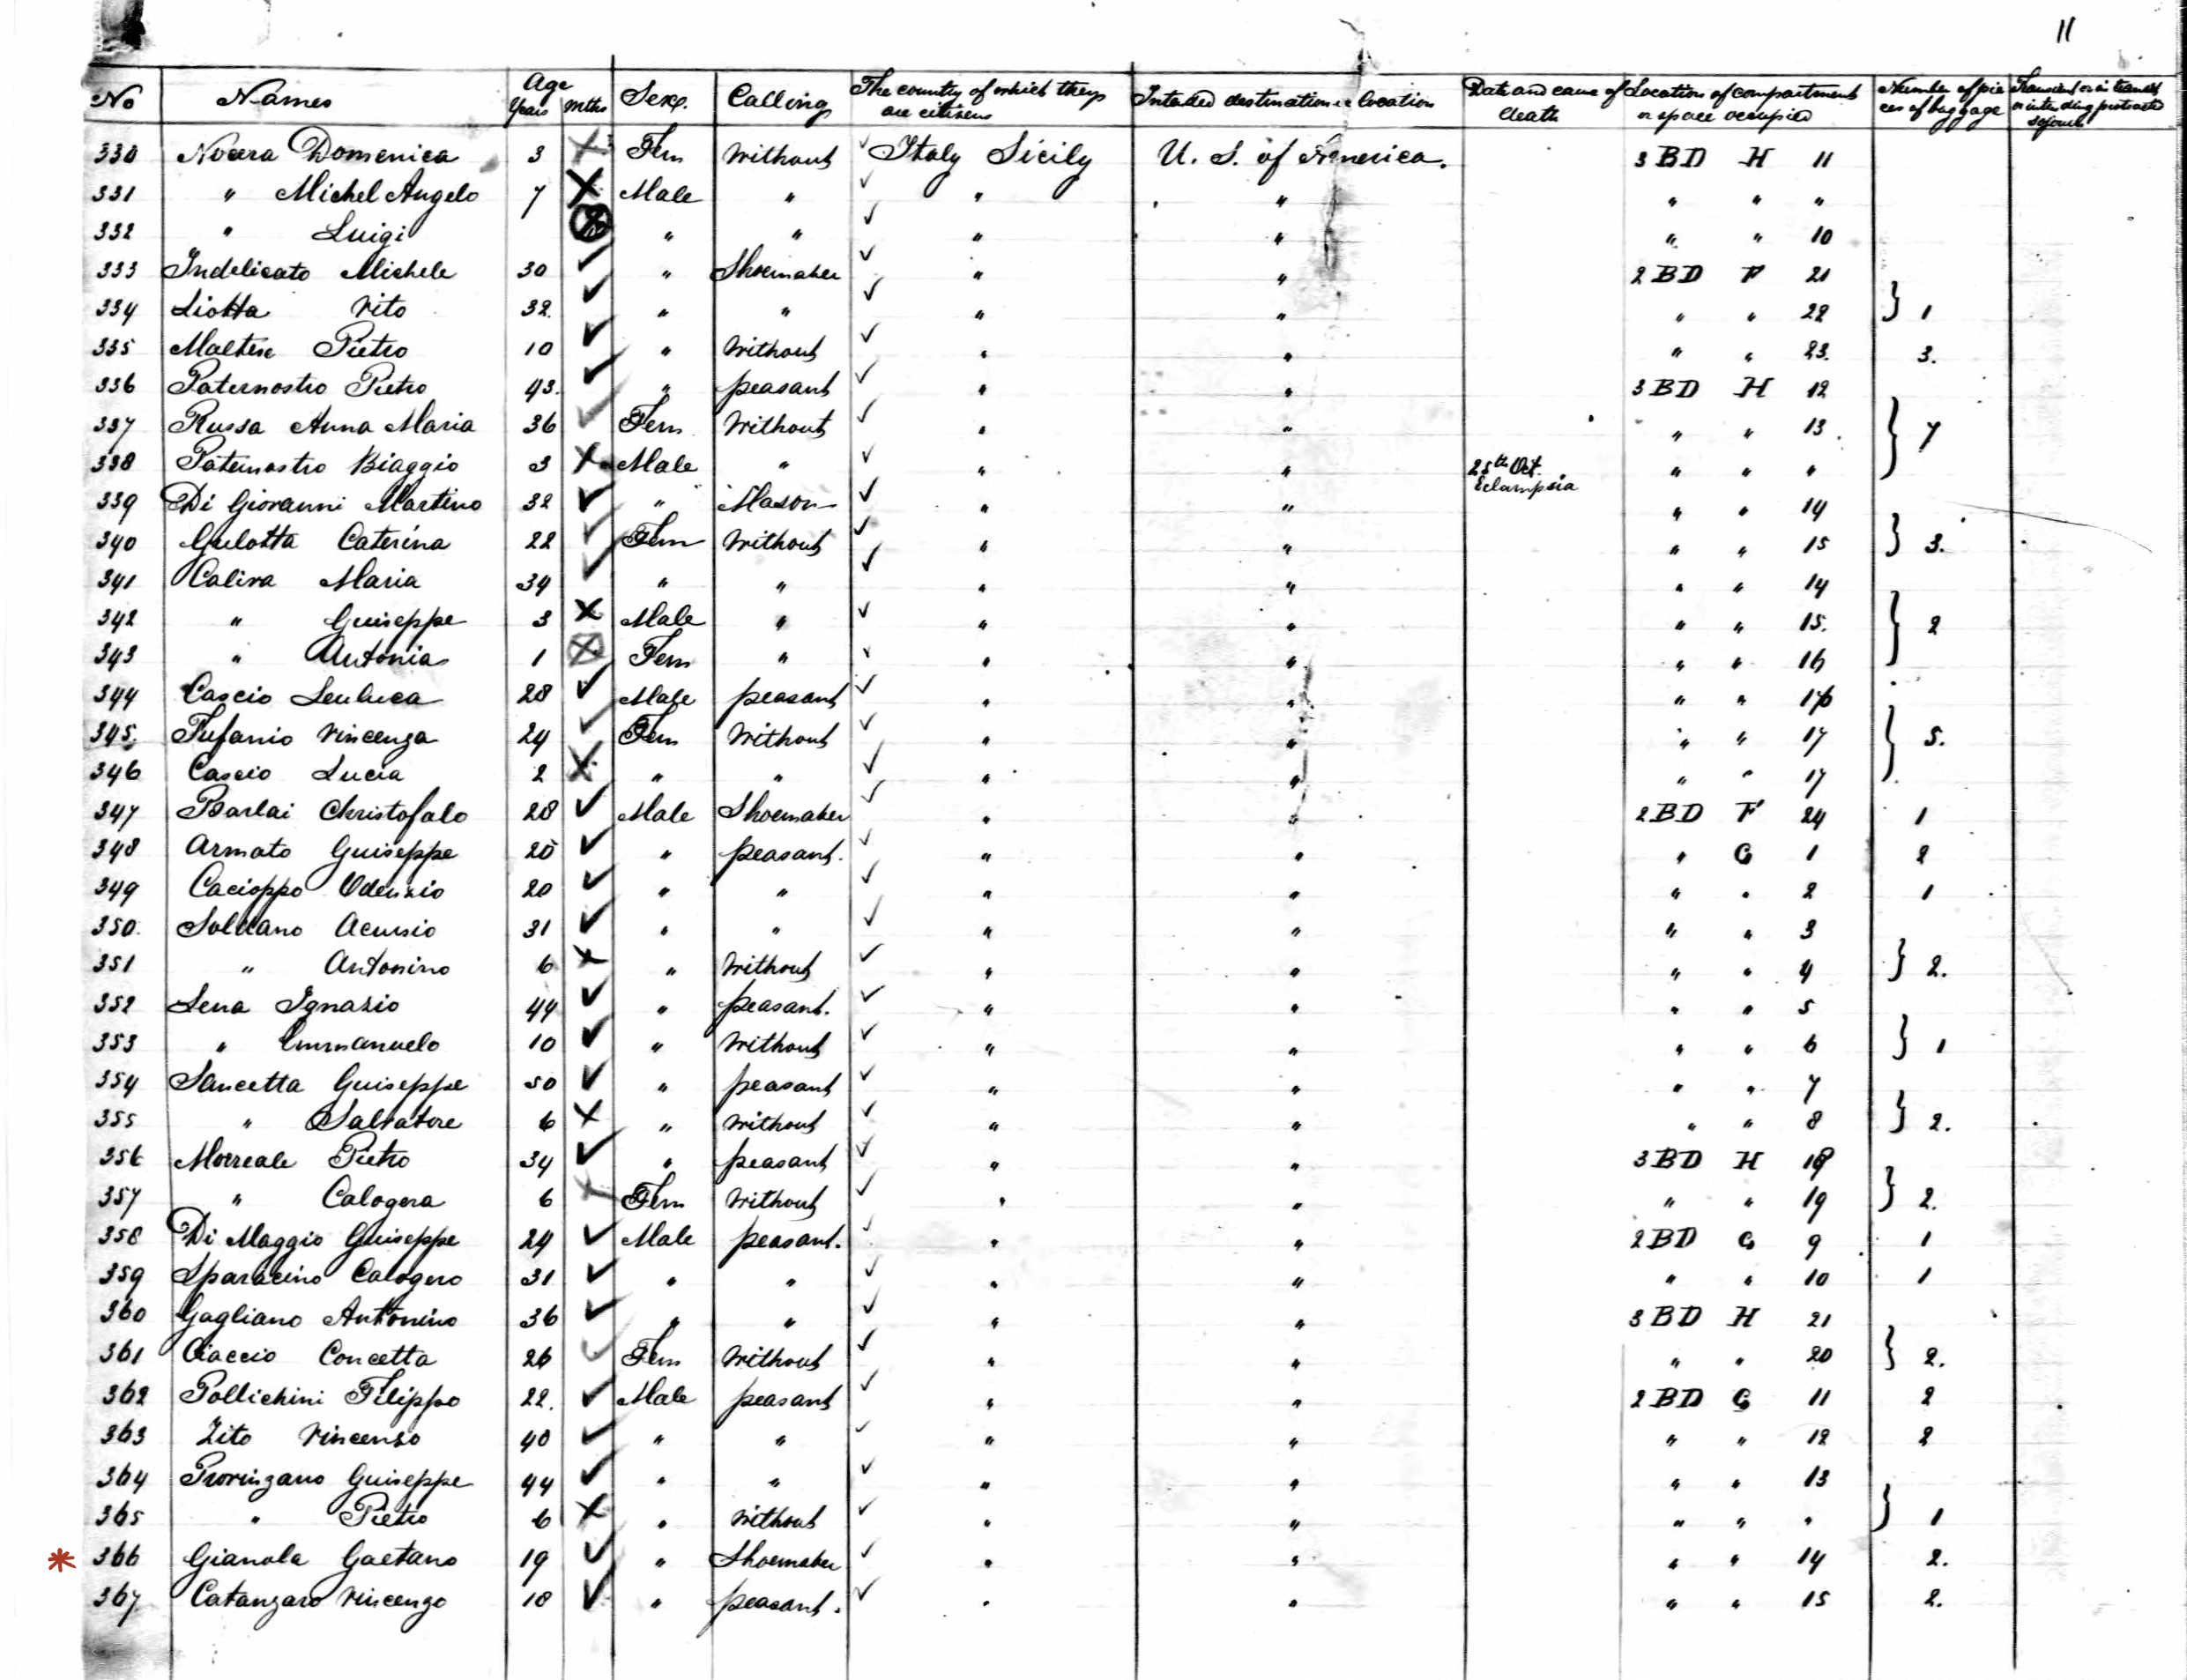 11
No Names Age Years Mths Sex. Calling The country of which they are citizens Intended destination or location Date and cause of death Location of compartment or space occupied Number of pieces of baggage Transient or in transit or intending protracted sojourn
330 Nocera Domenica 3 Fem Without Italy Sicily U. S. of America. 3 BD H 11
331 " Michel Angelo 7 Male " " " " " "
332 " Luigi " " " " " " 10
333 Indelicato Michele 30 " Shoemaker " " 2 BD F 21
334 Liotta Vito 32 " " " " " " 22 } 1
335 Maltese Pietro 10 " Without " " " " 23. 3.
336 Paternostro Pietro 43. " peasant " " 3 BD H 12
337 Russa Anna Maria 36 Fem Without " " " " 13 } 7
338 Paternostro Biaggio 3 Male " " " 25th Oct. Eclampsia " " "
339 Di Giovanni Martino 32 " Mason " " " " 14
340 Gulotta Caterina 22 Fem Without " " " " 15 } 3.
341 Caliva Maria 34 " " " " " " 14
342 " Guiseppe 3 Male " " " " " 15. } 2
343 " Antonia 1 Fem " " " " " 16
344 Cascio Leuluca 28 Male peasant " " " " 16
345. Tufanio Vincenza 24 Fem Without " " " " 17 } 5.
346 Cascio Lucia 2 " " " " " " 17
347 Barlai Christofalo 28 Male Shoemaker " " 2 BD F 24 1
348 Armato Guiseppe 25 " peasant. " " " G 1 2
349 Cacioppo 20 " " " " " " 2 1
350. Soldano Acursio 31 " " " " " " 3
351 " Antonino 6 " Without " " " " 4 } 2.
352 Lena Ignazio 44 " peasant. " " " " 5
353 " Emmanuelo 10 " Without " " " " 6 } 1
354 Sancetta Guiseppe 50 " peasant " " " " 7
355 " Salvatore 6 " Without " " " " 8 } 2.
356 Morreale Pietro 34 " peasant " " 3 BD H 18
357 " Calogera 6 Fem Without " " " " 19 } 2.
358 Di Maggio Guiseppe 24 Male peasant. " " 2 BD G 9 1
359 Sparacino Calogero 31 " " " " " " 10 1
360 Gagliano Antonino 36 " " " " 3 BD H 21
361 Ciaccio Concetta 26 Fem Without " " " " 20 } 2.
362 Pollichini Filippo 22. Male peasant " " 2 BD G 11 2
363 Zito Vincenzo 40 " " " " " " 12 2
364 Provinzano Guiseppe 44 " " " " " " 13
365 " Pietro 6 " Without " " " " " } 1
* 366 Gianola Gaetano 19 " Shoemaker " " " " 14 2.
367 Catanzaro Vincenzo 18 " peasant. " " " " 15 2.